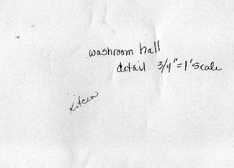 washroom hall
detail 3/4"=1' scale